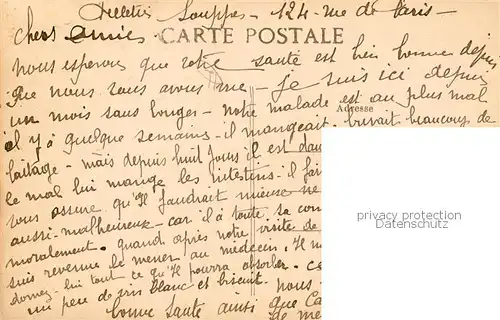 Souppes - 124 - rue de Paris -
chers amies
CARTE POSTALE
nous esperons que votre santé est bien bonne depuis
que nous vous avons vue - je suis ici depuis
un mois sans bouger - notre malade est au plus mal
Adresse
il y à quelque semaine - il mangeait, buvait beaucoup de
laitage - mais depuis huit jours il est dans
le mal lui mange les intestins - il
vous assure qu'il faudrait mieux ne
aussi malheureux - car il à toute sa con
moralement. quand après notre visite de
suis revenue le mener au médecin. Il m
donnez-lui tout ce qu'il pourra absorber. c
un peu de vin blanc et biscuit. nous
bonne Santé ainsi que Ca
de me
privacy protection
Datenschutz